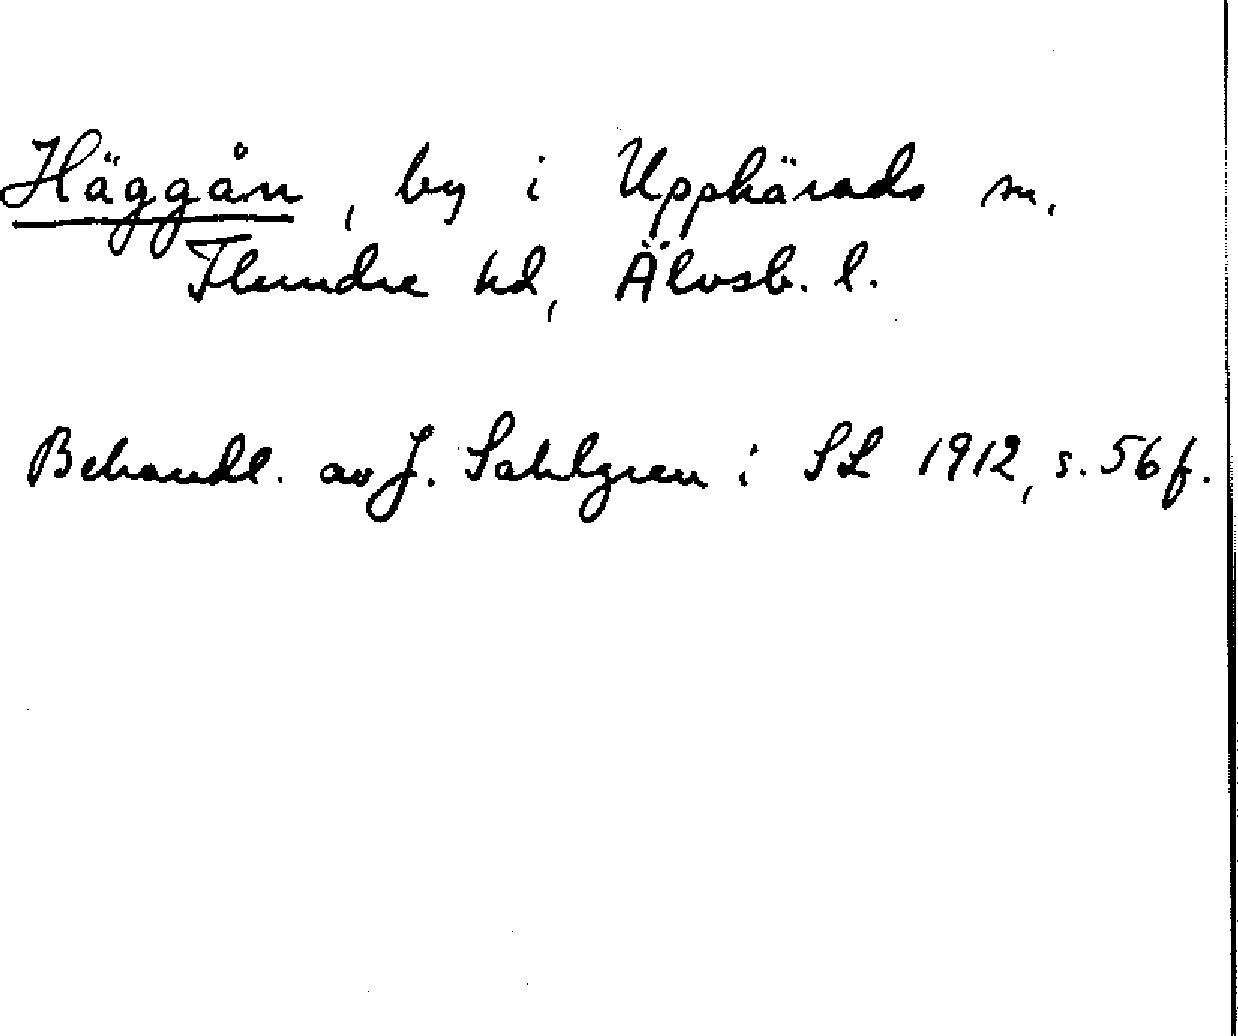 Häggån, by i Upphärads sn.
Flundre hd, Älvsb. l.
Behandl. av J. Sahlgren i SL 1912, s. 56 f.